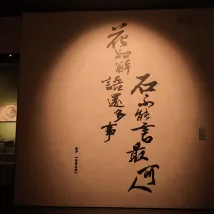 花如解語還多事
石不能言最可人